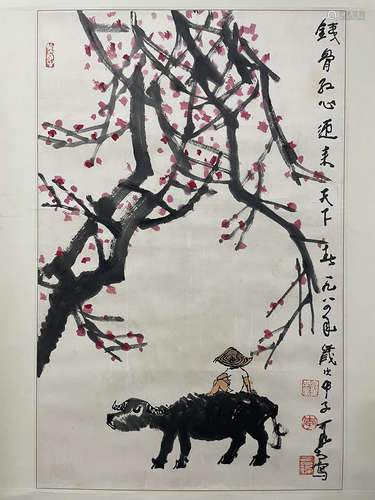 鐵骨红心迎来天下春一九八四年歲次甲子可染寫